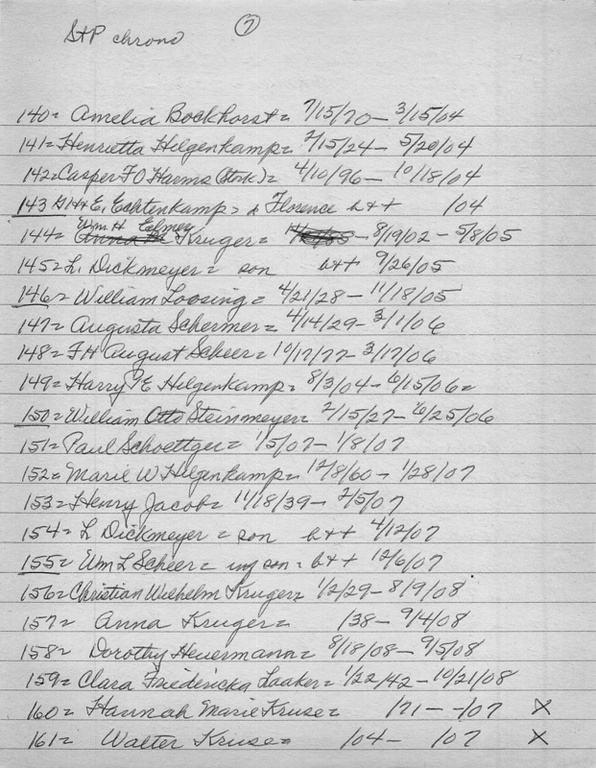 StP chrono 7
140= Amelia Bockhorst= 7/15/70- 3/15/04
141= Henrietta Hilgenkamp= 2/15/24- 5/20/04
142= Casper F O Harms (Stork)= 4/10/96- 10/18/04
143 E. Echtenkamp= d Florence b++ /04
144= Wm H. Kruger= 8/19/02- 5/8/05
145= L. Dickmeyer= son b++ 9/26/05
146= William Loosing= 4/21/28- 11/18/05
147= Augusta Schermer= 4/14/29- 3/1/06
148= F H August Scheer= 10/17/77- 3/17/06
149= Harry E Hilgenkamp= 8/3/04- 6/15/06=
150= William Otto Steinmeyer= 2/15/27- 6/25/06
151= Paul Schoettger= 1/5/07- 1/8/07
152= Marie W Hilgenkamp= 12/8/60- 1/28/07
153= Henry Jacob= 11/18/39- 2/5/07
154= L Dickmeyer= son b++ 4/12/07
155= Wm L Scheer= son= b++ 12/6/07
156= Christian Wilhelm Kruger= 1/2/29- 8/9/08
157= Anna Kruger= /38- 9/4/08
158= Dorothy Heuermann= 8/18/08- 9/5/08
159= Clara Friedericka Laaker= 1/22/42- 10/21/08
160= Hannah Marie Kruse= /71- -/07 X
161= Walter Kruse= /04- /07 X